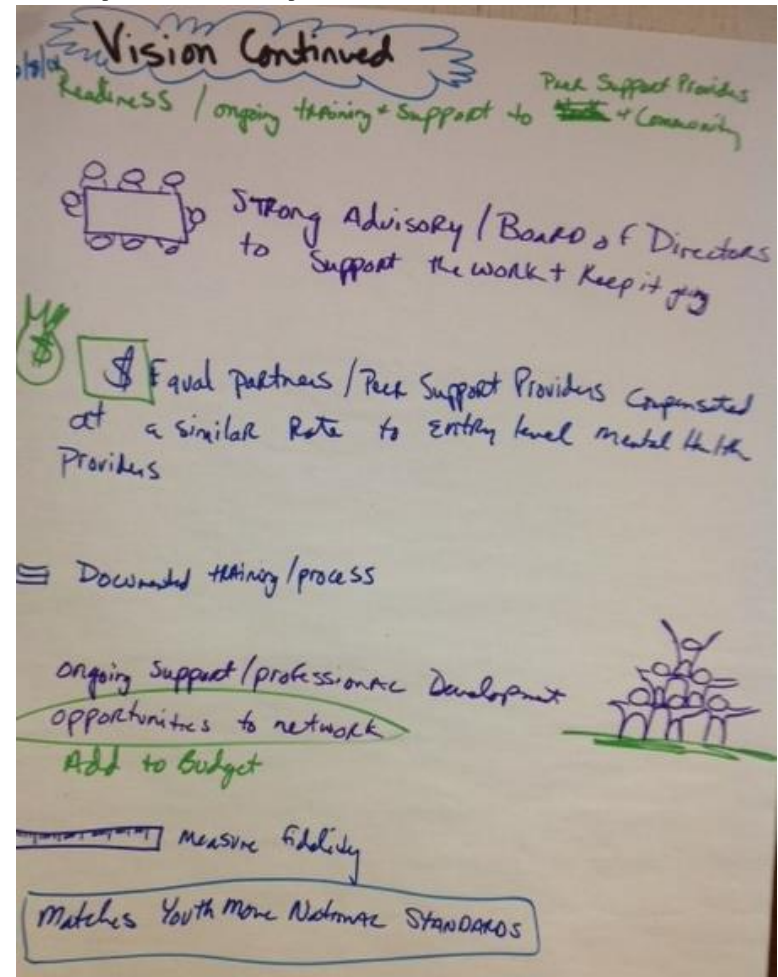 Vision Continued
Readiness / ongoing training + Support to Peer Support Providers
+ Community
Strong Advisory / Board of Directors
to Support the work + Keep it going
$
$ Equal partners / Peer Support Providers Compensated
at a similar Rate to Entry level mental Health
Providers
Documented training / process
ongoing Support / professional Development
opportunities to network
Add to Budget
Measure fidelity
Matches Youth Move National STANDARDS